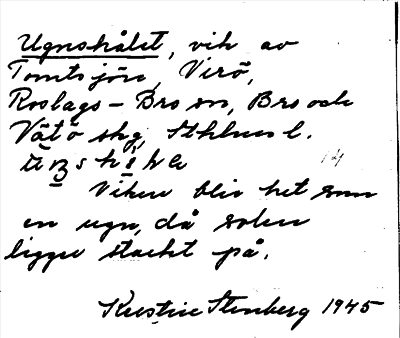 Ugnshålet, vik av
Tomtsjön, Virö,
Roslags-Bro sn, Bro och
Vätö skg, Sthlms l.
14
Viken blir het som
en ugn, då solen
ligger starkt på.
Kerstin Stenberg 1945